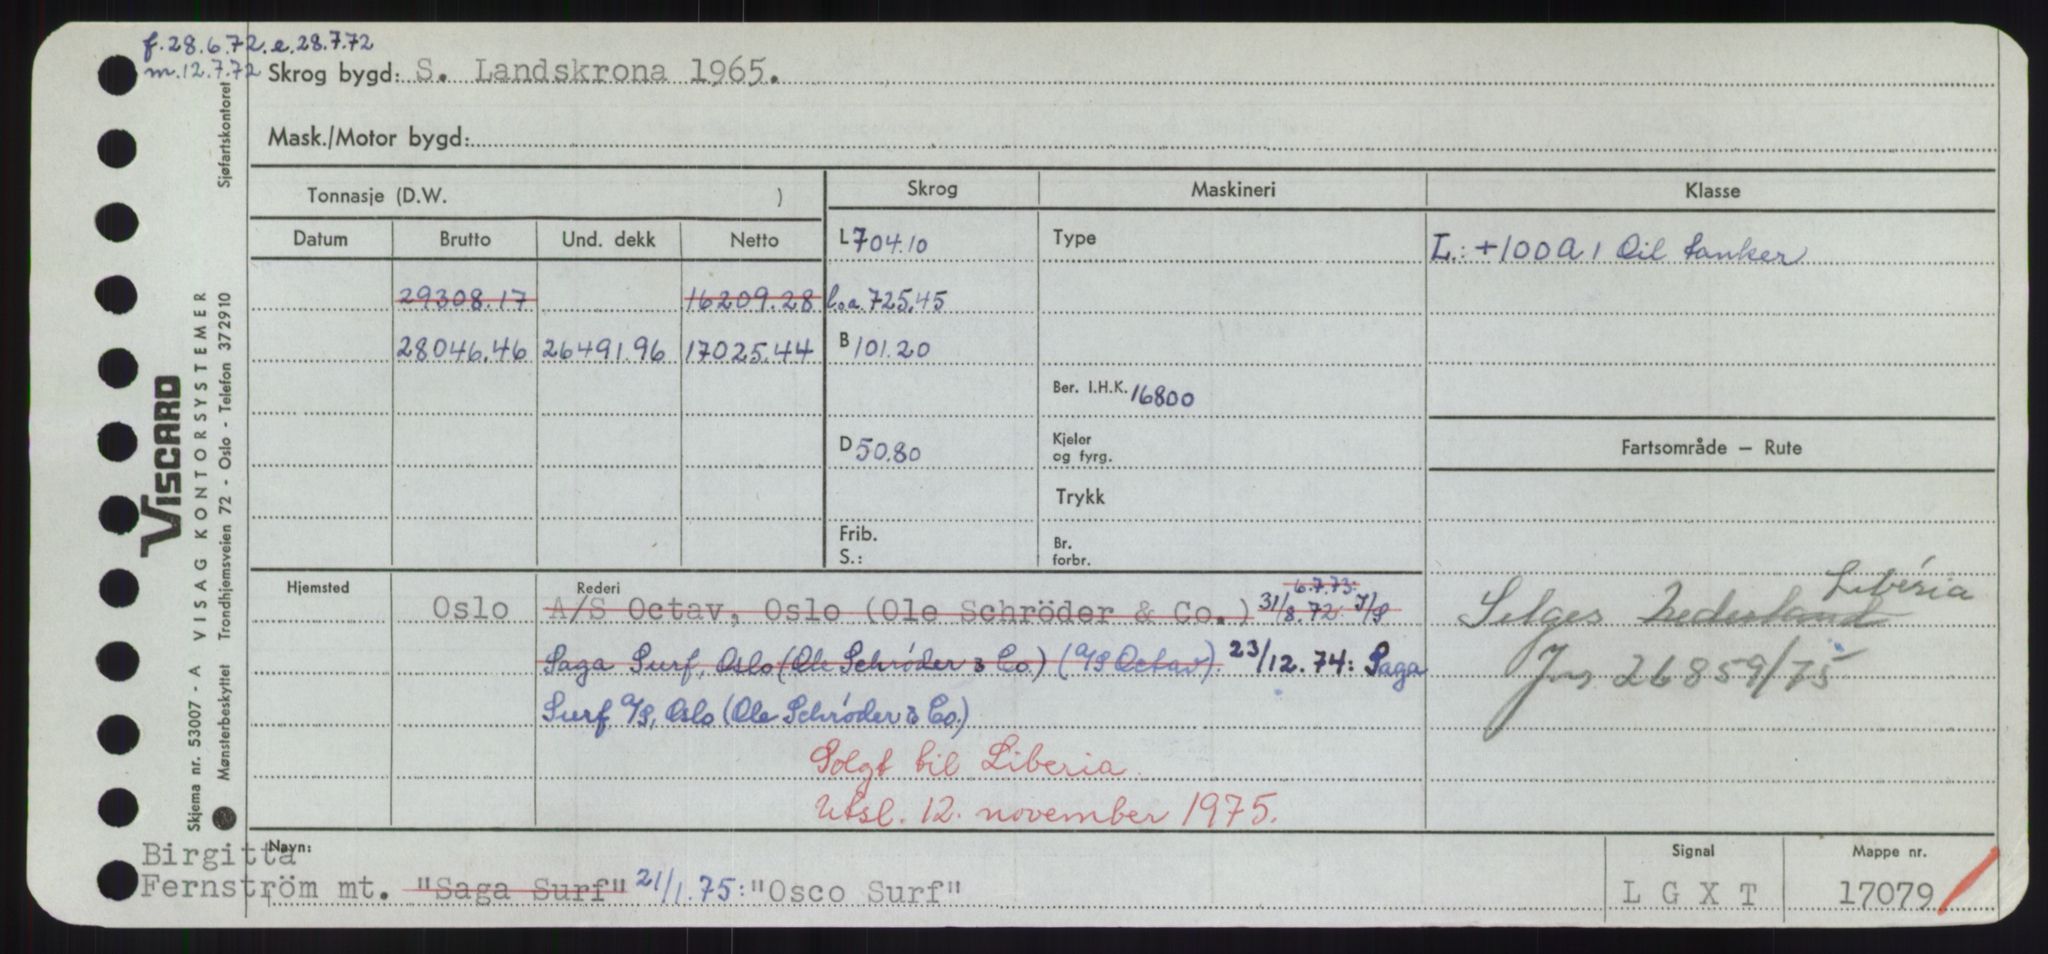 f. 28.6.72. e. 28.7.72
m. 12.7.72 Skrog bygd: S. Landskrona 1965.
Mask./Motor bygd:
Tonnasje (D.W. )
Skrog Maskineri Klasse
Datum Brutto Und. dekk Netto
L 704.10 Type L.: +100A1 Oil tanker
29308.17 16209.28 l.o.a. 725.45
28046.46 26491.96 17025.44 B 101.20
Ber. I.H.K. 16800
D 50.80 Kjeler og fyrg. Fartsområde — Rute
Trykk
Frib. S.: Br. forbr.
Hjemsted Rederi 6.7.73: Liberia
Oslo A/S Octav, Oslo (Ole Schröder & Co.) 31/8.72: I/S Selges Nederland
Saga Surf, Oslo (Ole Schrøder & Co.) (A/S Octav). 23/12.74: Saga Jnr 26859/75
Surf A/S, Oslo (Ole Schrøder & Co.)
Solgt til Liberia.
Utsl. 12. november 1975.
Navn: Signal Mappe nr.
Birgitta
Fernström mt. "Saga Surf" 21/1.75: "Osco Surf" L G X T 17079
Sjøfartskontoret
VISCARD
Skjema nr. 53007 - A VISAG KONTORSYSTEMER
Mønsterbeskyttet Trondhjemsveien 72 - Oslo - Telefon 372910